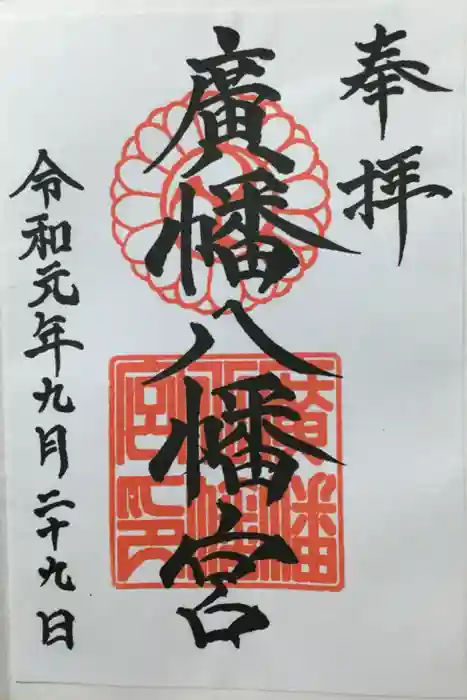 奉拝
廣幡八幡宮
令和元年九月二十九日